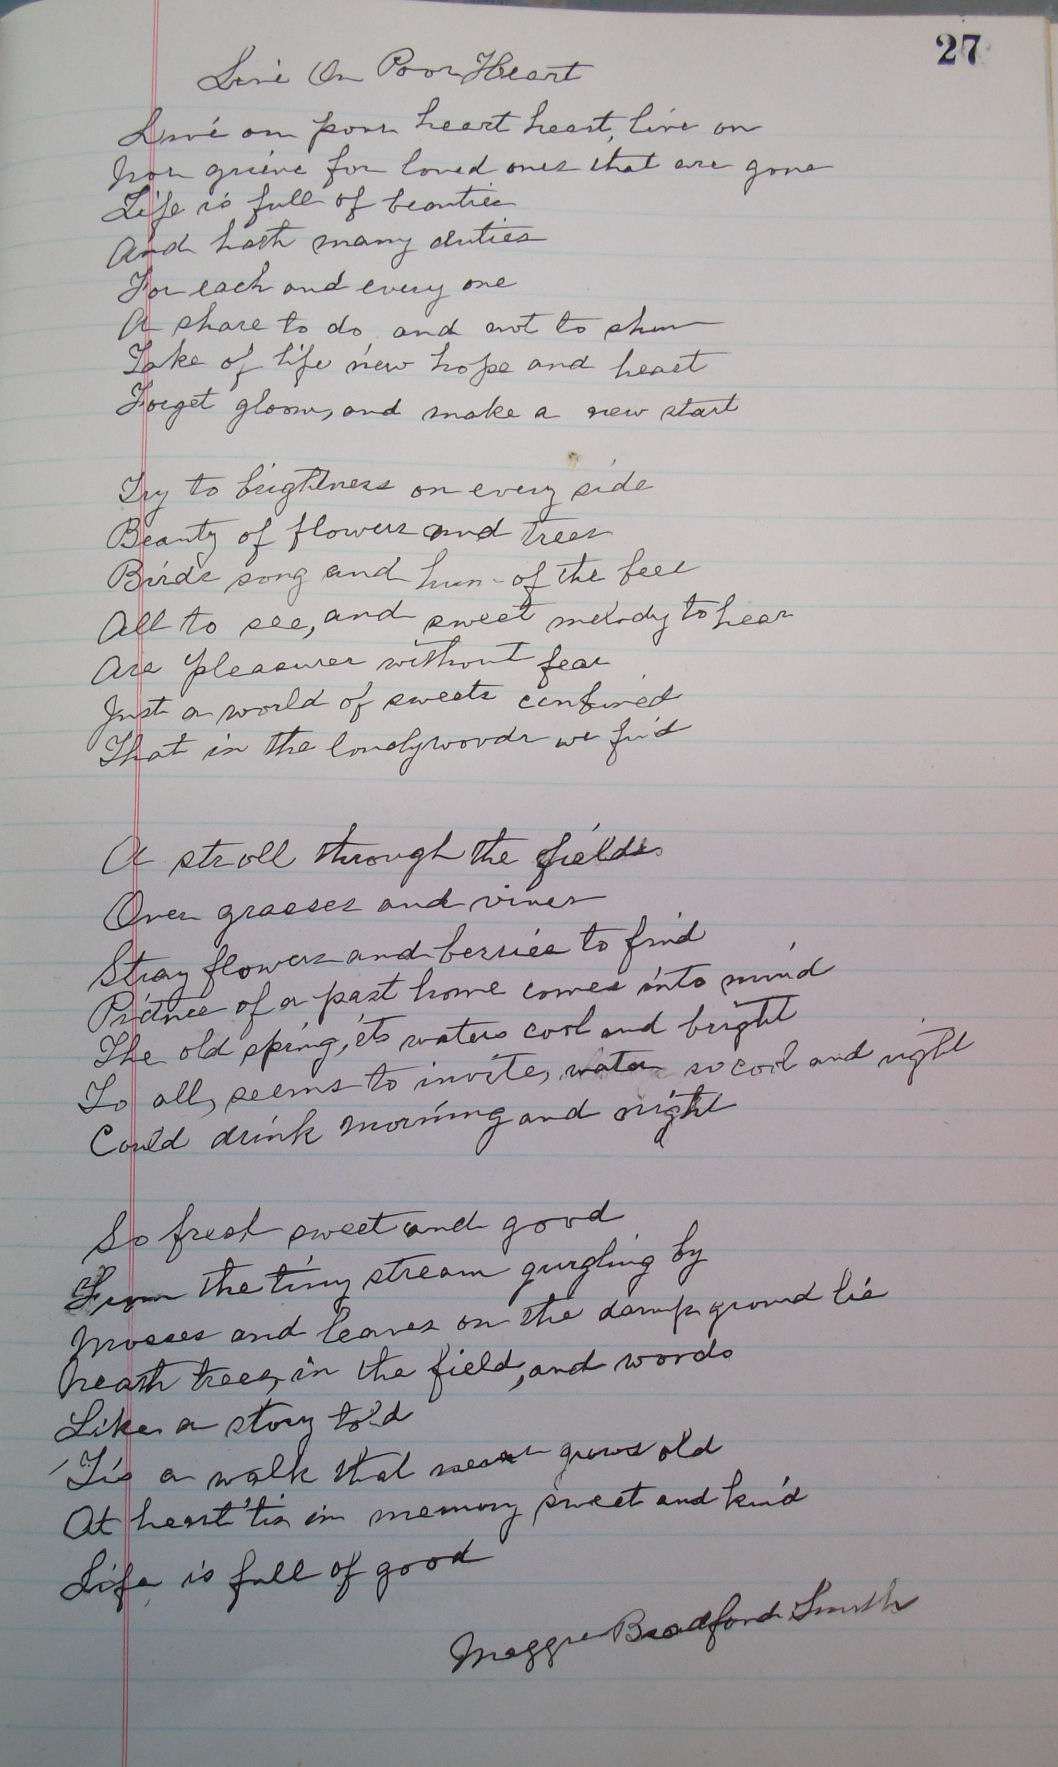 27
Live On Poor Heart
Live on poor heart heart, live on
Nor grieve for loved ones that are gone
Life is full of beauties
And hath many duties
For each and every one
A share to do and not to shun
Take of life new hope and heart
Forget gloom, and make a new start
Try to brightness on every side
Beauty of flowers and trees
Birds song and hum of the bees
All to see, and sweet melody to hear
Are pleasures without fear
Just a world of sweets confined
That in the lonely woods we find
A stroll through the fields
Over grasses and vines
Stray flowers and berries to find
Picture of a past home comes into mind
The old spring, its waters cool and bright
To all, seems to invite, water so cool and right
Could drink morning and night
So fresh sweet and good
From the tiny stream gurgling by
Mosses and leaves on the damp ground lie
trees, in the field, and woods
Like a story told
'Tis a walk that never grows old
At heart 'tis in memory sweet and kind
Life is full of good
Maggie Bradford Smith